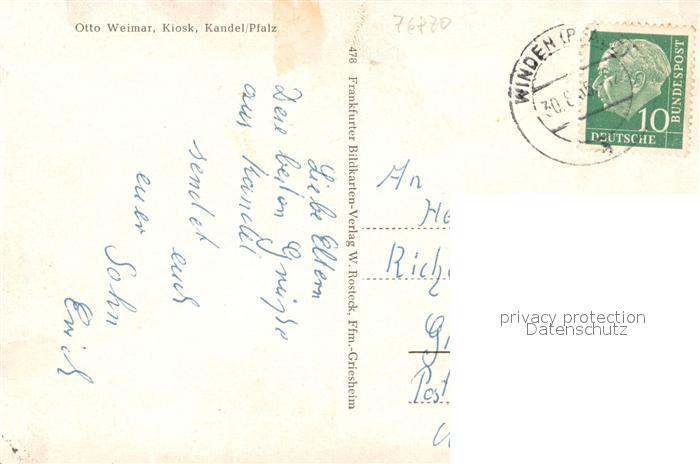 Otto Weimar, Kiosk, Kandel/Pfalz
76870
Liebe Eltern
Deie besten Grüsse
aus Kandel
sendet euch
euer Sohn
Erich
478 Frankfurter Bildkarten-Verlag W. Rosteck, Ffm.-Griesheim
WINDEN
30.
DEUTSCHE
BUNDESPOST
10
An
He
Rich
Post
privacy protection
Datenschutz